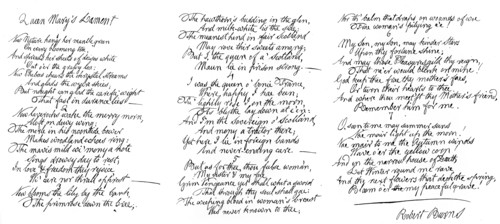 Queen Mary's Lament
Now Nature hangs her mantle green
On every blooming tree,
And spreads her sheets of daisy white
Out o'er the grassy lea;
Now Phebus chears the chrystal streams
And glads the azure skies;
But nought can glad the weary wight
That fast in durance lies.
Now laverocks wake the merry morn,
Aloft on dewy wing;
The merle in his noontide bower
Makes woodland echoes ring;
The mavis mild wi' many a note
Sings drowsy day to rest:
In love & freedom they rejoice
Wi' care nor thrall opprest.
Now blooms the lily by the bank
The primrose down the brae;
The hawthorn's budding in the glen,
And milk-white is the slae;
The meanest hind in fair Scotland
May rove these sweets amang;
But I, the queen of a' Scotland,
Maun lie in prison strong.
I was the queen o' bonie France,
Where happy I hae been;
Fu' lightly rise I on the morn,
As blythe lay down at e'en:
And I'm the sovereign of Scotland
And mony a traitor there;
Yet here I lie in foreign bands
And never-ending care.
But as for thee, thou false woman,
My sister & my fae,
Grim vengeance yet shall whet a sword
That through thy soul shall gae:
The weeping blood in woman's breast
Was never known to thee,
Nor th' balm that draps on wounds of woe
Frae woman's pitying e'e.
My son, my son, may kinder stars
Upon thy fortune shine;
And may those pleasures gild thy reign,
That ne'er would blink on mine:
God keep thee frae thy mother's faes,
Or turn their hearts to thee:
And when thou meet'st thy mother's friend,
Remember him for me.
O soon to me may summer suns
Nae mair light up the morn;
Nae mair to me the Autumn winds
Wave o'er the yellow corn
And in the narrow house of death
Let Winter round me rave
And the next flowers that deck the spring,
Bloom o'er my peaceful grave.
Robert Burns